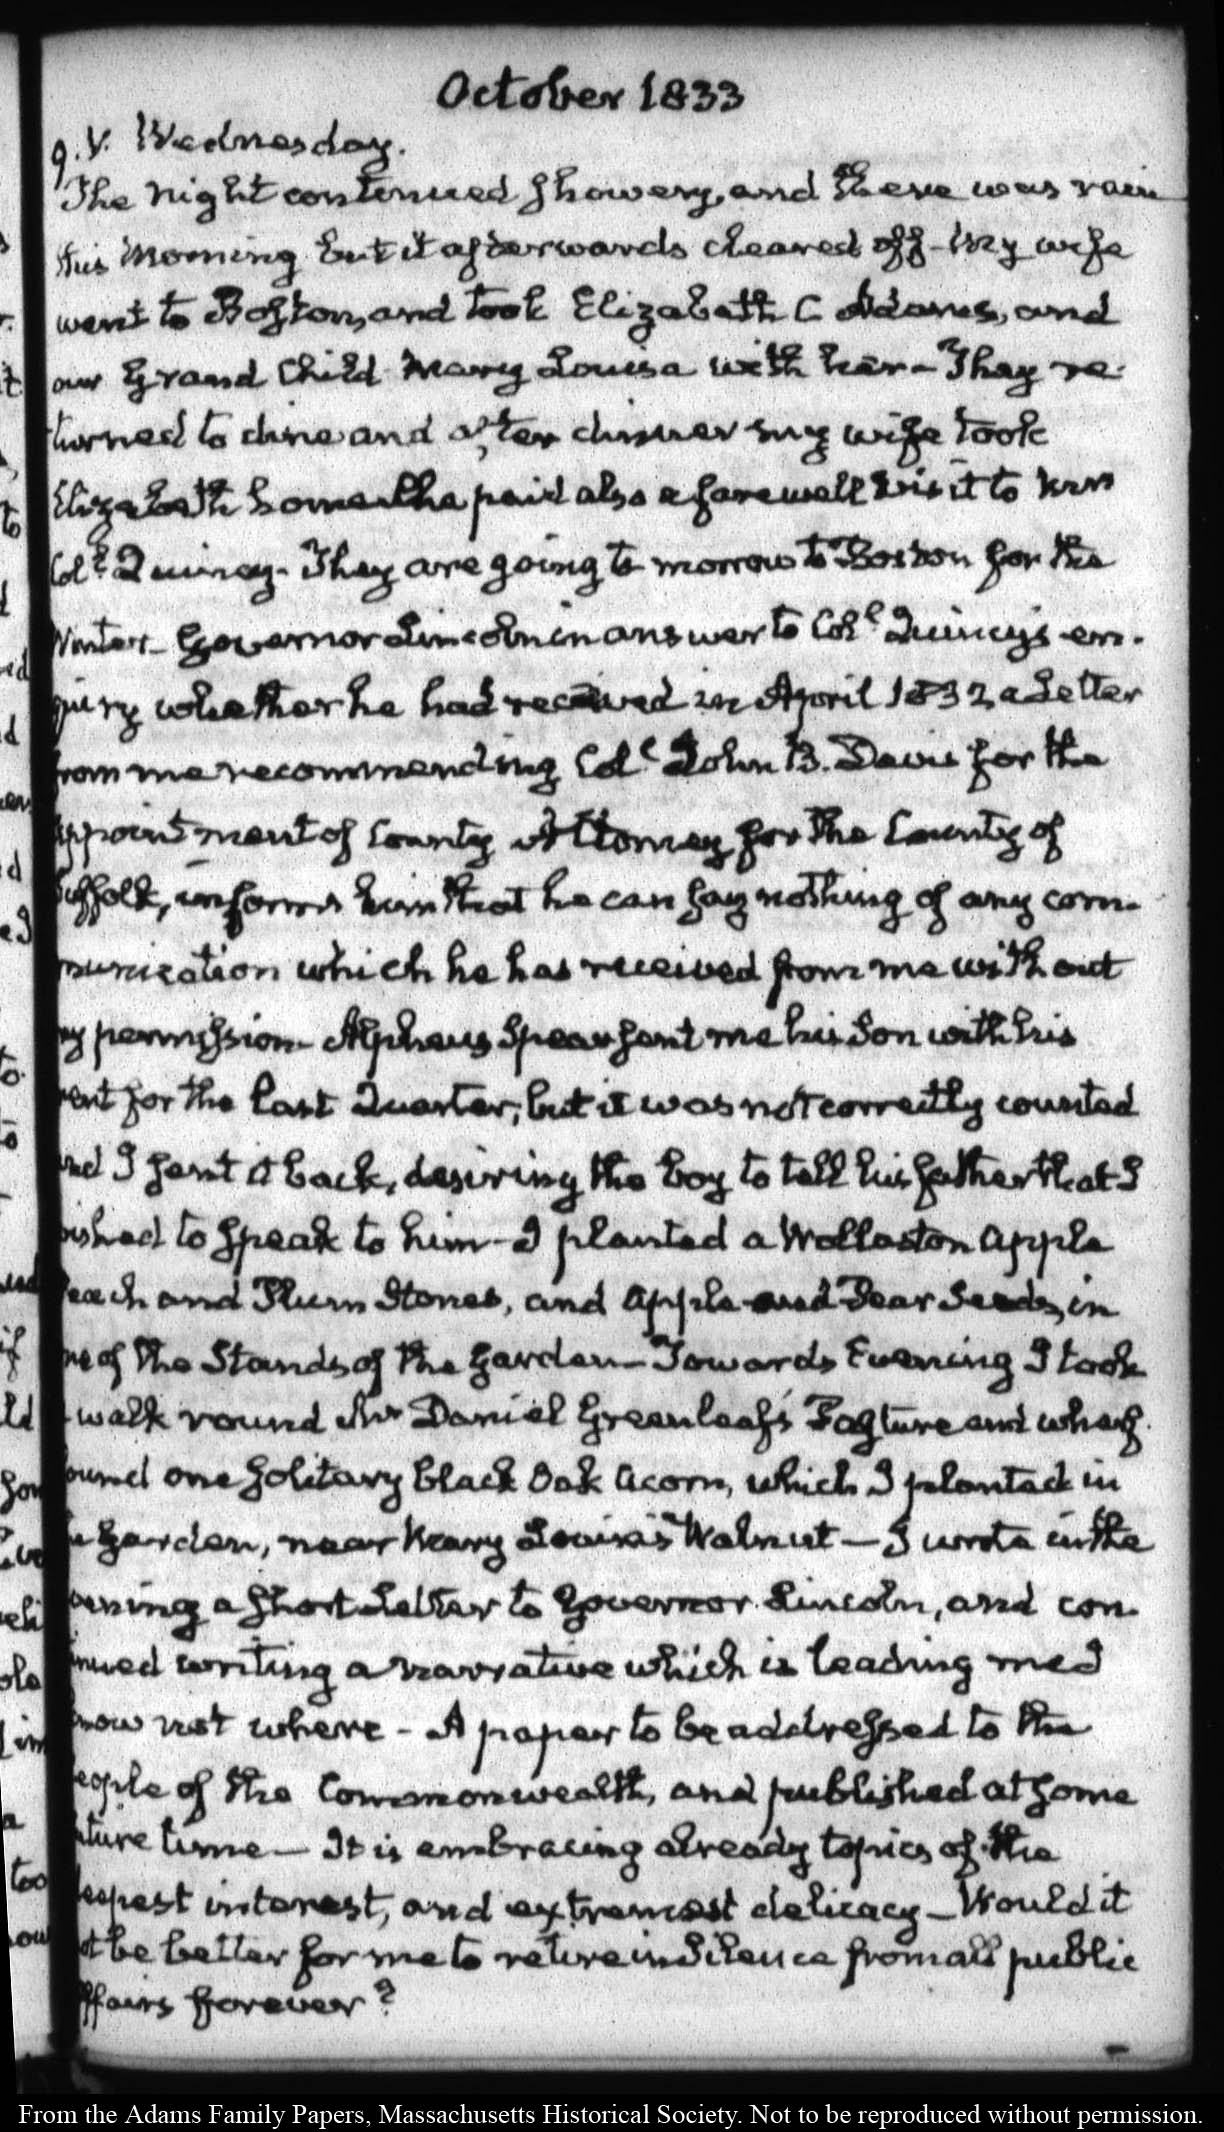 October 1833
9. V. Wednesday.
The night continued showery, and there was rain
this morning but it afterwards cleared off - My wife
went to Boston, and took Elizabeth C Adams, and
our Grand Child Mary Louisa with her - They re-
turned to dine and after dinner my wife took
Elizabeth home she paid also a farewell visit to Mrs
Coll Quincy - They are going to morrow to Boston for the
Winter - Governor Lincoln in answer to Coll Quincy's en-
quiry whether he had received in April 1832 a Letter
from me recommending Coll John B. Davis for the
appointment of County Attorney for the County of
Suffolk, informs him that he can say nothing of any com-
munication which he has received from me without
my permission - Alpheus Spear sent me his Son with his
rent for the last Quarter; but it was not correctly counted
and I sent it back, desiring the boy to tell his father that I
wished to speak to him - I planted a Wollaston Apple
Peach and Plum Stones, and Apple and Pear Seeds, in
one of the Stands of the Garden - Towards Evening I took
a walk round Mr Daniel Greenleaf's Pasture and wharf.
found one solitary black Oak Acorn, which I planted in
the Garden, near Mary Louisa's Walnut — I wrote in the
evening a short Letter to Governor Lincoln, and con-
tinued writing a narrative which is leading me I
know not where - A paper to be addressed to the
people of the Commonwealth, and published at some
future time — It is embracing already topics of the
deepest interest, and extremest delicacy - Would it
not be better for me to retire in Silence from all public
affairs forever?
From the Adams Family Papers, Massachusetts Historical Society. Not to be reproduced without permission.